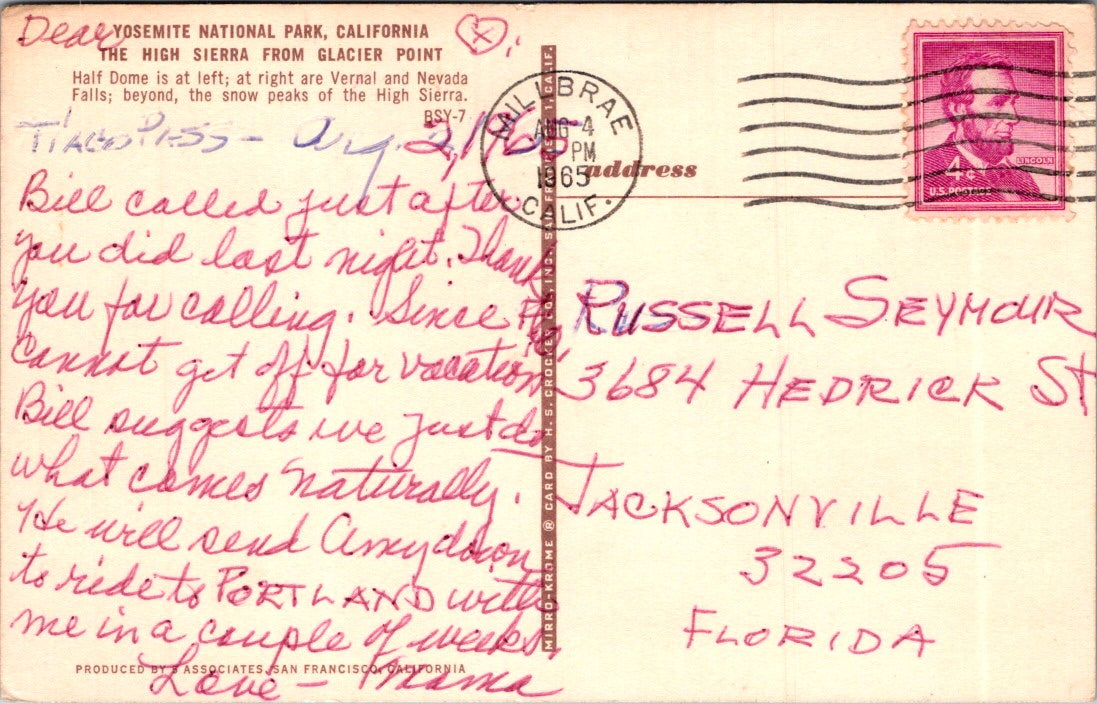 Dear
YOSEMITE NATIONAL PARK, CALIFORNIA
THE HIGH SIERRA FROM GLACIER POINT
Half Dome is at left; at right are Vernal and Nevada
Falls; beyond, the snow peaks of the High Sierra.
BSY-7
Aug. 2, 1965
Bill called just after
you did last night. Thank
you for calling. Since
cannot get off for vacation
Bill suggests we just do
what comes naturally.
He will send Amy down
to ride to PORTLAND with
me in a couple of weeks.
Love - Mama
PRODUCED BY ASSOCIATES, SAN FRANCISCO, CALIFORNIA
MIRRO-KROME ® CARD BY H. S. CROCKER CO., INC., SAN FRANCISCO 1, CALIF.
MILLBRAE
AUG 4
PM
1965
CALIF.
address
LINCOLN
4¢
U.S. POSTAGE
RUSSELL SEYMOUR
3684 HEDRICK ST
JACKSONVILLE
32205
FLORIDA